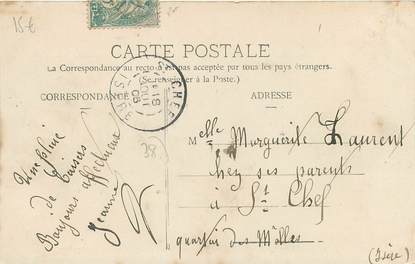 15 €
CARTE POSTALE
La Correspondance au recto n'est pas acceptée par tous les pays étrangers.
(Se renseigner à la Poste.)
CORRESPONDANCE
ADRESSE
ST CHEF
ISÈRE
AOUT
08
38
Une pluie
de baisers
Toujours affectueuse
Jeanne
Melle Marguerite Laurent
chez ses parents
à St Chef
quartier des Môlles
(Isère)